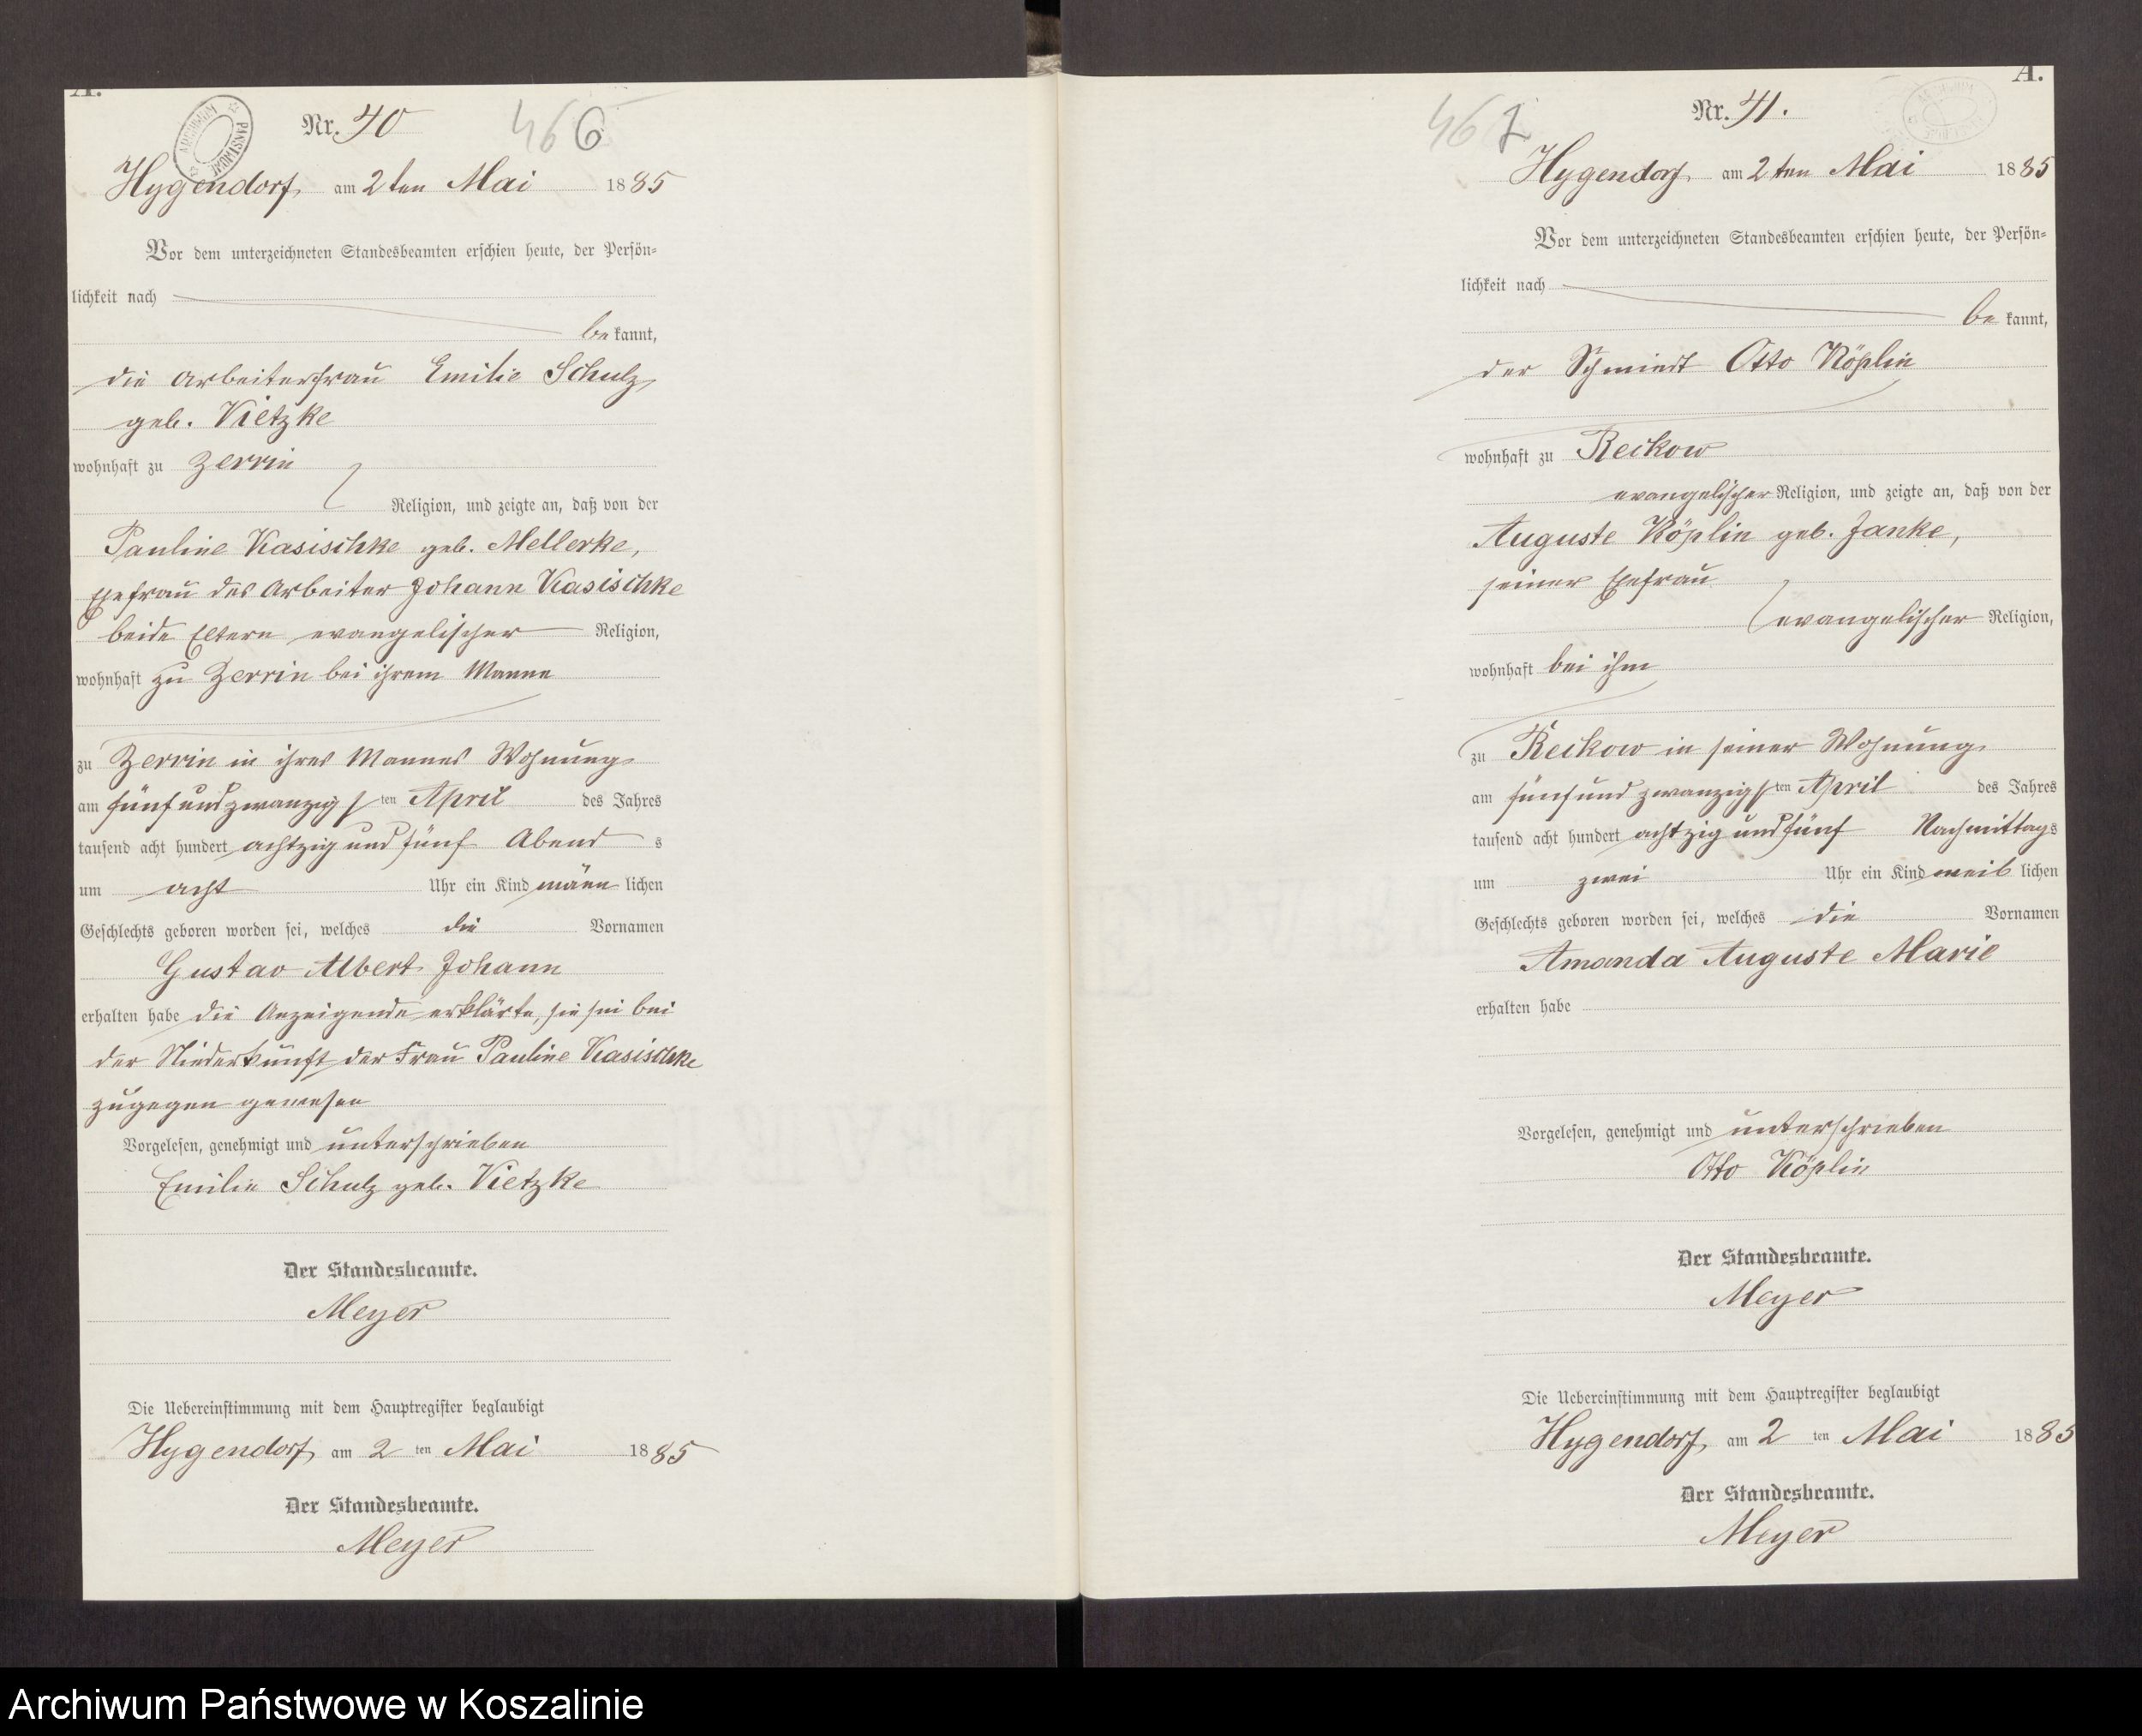 A.
ARCHIWUM PAŃSTWOWE
Nr. 40
466
Hygendorf, am 2ten Mai 1885
Vor dem unterzeichneten Standesbeamten erschien heute, der Persön=
lichkeit nach
bekannt,
die Arbeiterfrau Emilie Schulz,
geb. Vietzke
wohnhaft zu Zerrin
Religion, und zeigte an, daß von der
Pauline Kasischke geb. Mellerke,
Ehefrau des Arbeiter Johann Kasischke
beide Eltern evangelischer Religion,
wohnhaft zu Zerrin bei ihrem Manne
zu Zerrin in ihres Mannes Wohnung
am fünfundzwanzigsten April des Jahres
tausend acht hundert achtzig und fünf Abends
um acht Uhr ein Kind männlichen
Geschlechts geboren worden sei, welches die Vornamen
Gustav Albert Johann
erhalten habe die Anzeigende erklärte, sie sei bei
der Niederkunft der Frau Pauline Kasischke
zugegen gewesen
Vorgelesen, genehmigt und unterschrieben
Emilie Schulz geb. Vietzke
Der Standesbeamte.
Meyer
Die Uebereinstimmung mit dem Hauptregister beglaubigt
Hygendorf, am 2ten Mai 1885
Der Standesbeamte.
Meyer
A.
467
Nr. 41.
Hygendorf, am 2ten Mai 1885
Vor dem unterzeichneten Standesbeamten erschien heute, der Persön=
lichkeit nach
bekannt,
der Schmiedt Otto Köplin
wohnhaft zu Reckow
evangelischer Religion, und zeigte an, daß von der
Auguste Köplin geb. Janke,
seiner Ehefrau
evangelischer Religion,
wohnhaft bei ihm
zu Reckow in seiner Wohnung
am fünfundzwanzigsten April des Jahres
tausend acht hundert achtzig und fünf Nachmittags
um zwei Uhr ein Kind weiblichen
Geschlechts geboren worden sei, welches die Vornamen
Amanda Auguste Marie
erhalten habe
Vorgelesen, genehmigt und unterschrieben
Otto Köplin
Der Standesbeamte.
Meyer
Die Uebereinstimmung mit dem Hauptregister beglaubigt
Hygendorf, am 2ten Mai 1885
Der Standesbeamte.
Meyer
Archiwum Państwowe w Koszalinie